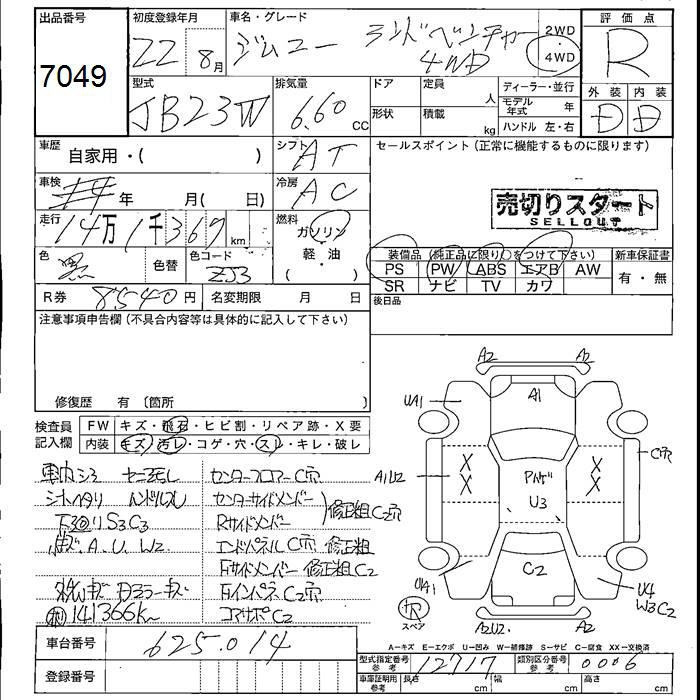 出品番号
7049
初度登録年月
22 8月
車名・グレード
ジムニー ランドベンチャー
4WD
2WD
・
4WD
評価点
R
型式
JB23W
排気量
6.60
CC
ドア
定員
人
ディーラー・並行
モデル年式 年
形状
積載
kg
ハンドル 左・右
外装 内装
D D
車歴
自家用・( )
シフト
AT
セールスポイント(正常に機能するものに限ります)
車検
年 月( 日)
冷房
AC
売切りスタート
SELLOUT
走行
14万1千367
km
燃料
ガソリン
・
軽・油
( )
装備品(純正品に限り○をつけて下さい)
新車保証書
PS PW ABS エアB AW
SR ナビ TV カワ
有・無
色
黒
色替
色コード
ZJ3
R券
8540円
名変期限 月 日
後日品
注意事項申告欄(不具合内容等は具体的に記入して下さい)
修復歴 有〔箇所 〕
検査員
記入欄
FW キズ・飛石・ヒビ割・リペア跡・X要
内装 キズ・汚レ・コゲ・穴・スレ・キレ・破レ
センターフロアーC穴
シートヘタリ ハンドルスレ
センターサイドメンバー
修正粗C2穴
下廻りS3C3
Rサイドメンバー
A.U.W2
エンドパネルC穴 修正粗
Fサイドメンバー 修正粗C2
ドアミラーキズ
FインパネC2穴
141366km
コアサポC2
A2 A2
UA1 A1
A1U2
X X
X X
U3
C穴
UA1
C2
U4
W3C2
スペア
A2U2. A2
A−キズ E−エクボ U−凹み W−補修跡 S−サビ C−腐食 XX−交換済
車台番号
625014
登録番号
型式指定番号
参考
12717
類別区分番号
参考
0006
車庫証明用
参考
長さ cm
幅 cm
高さ cm